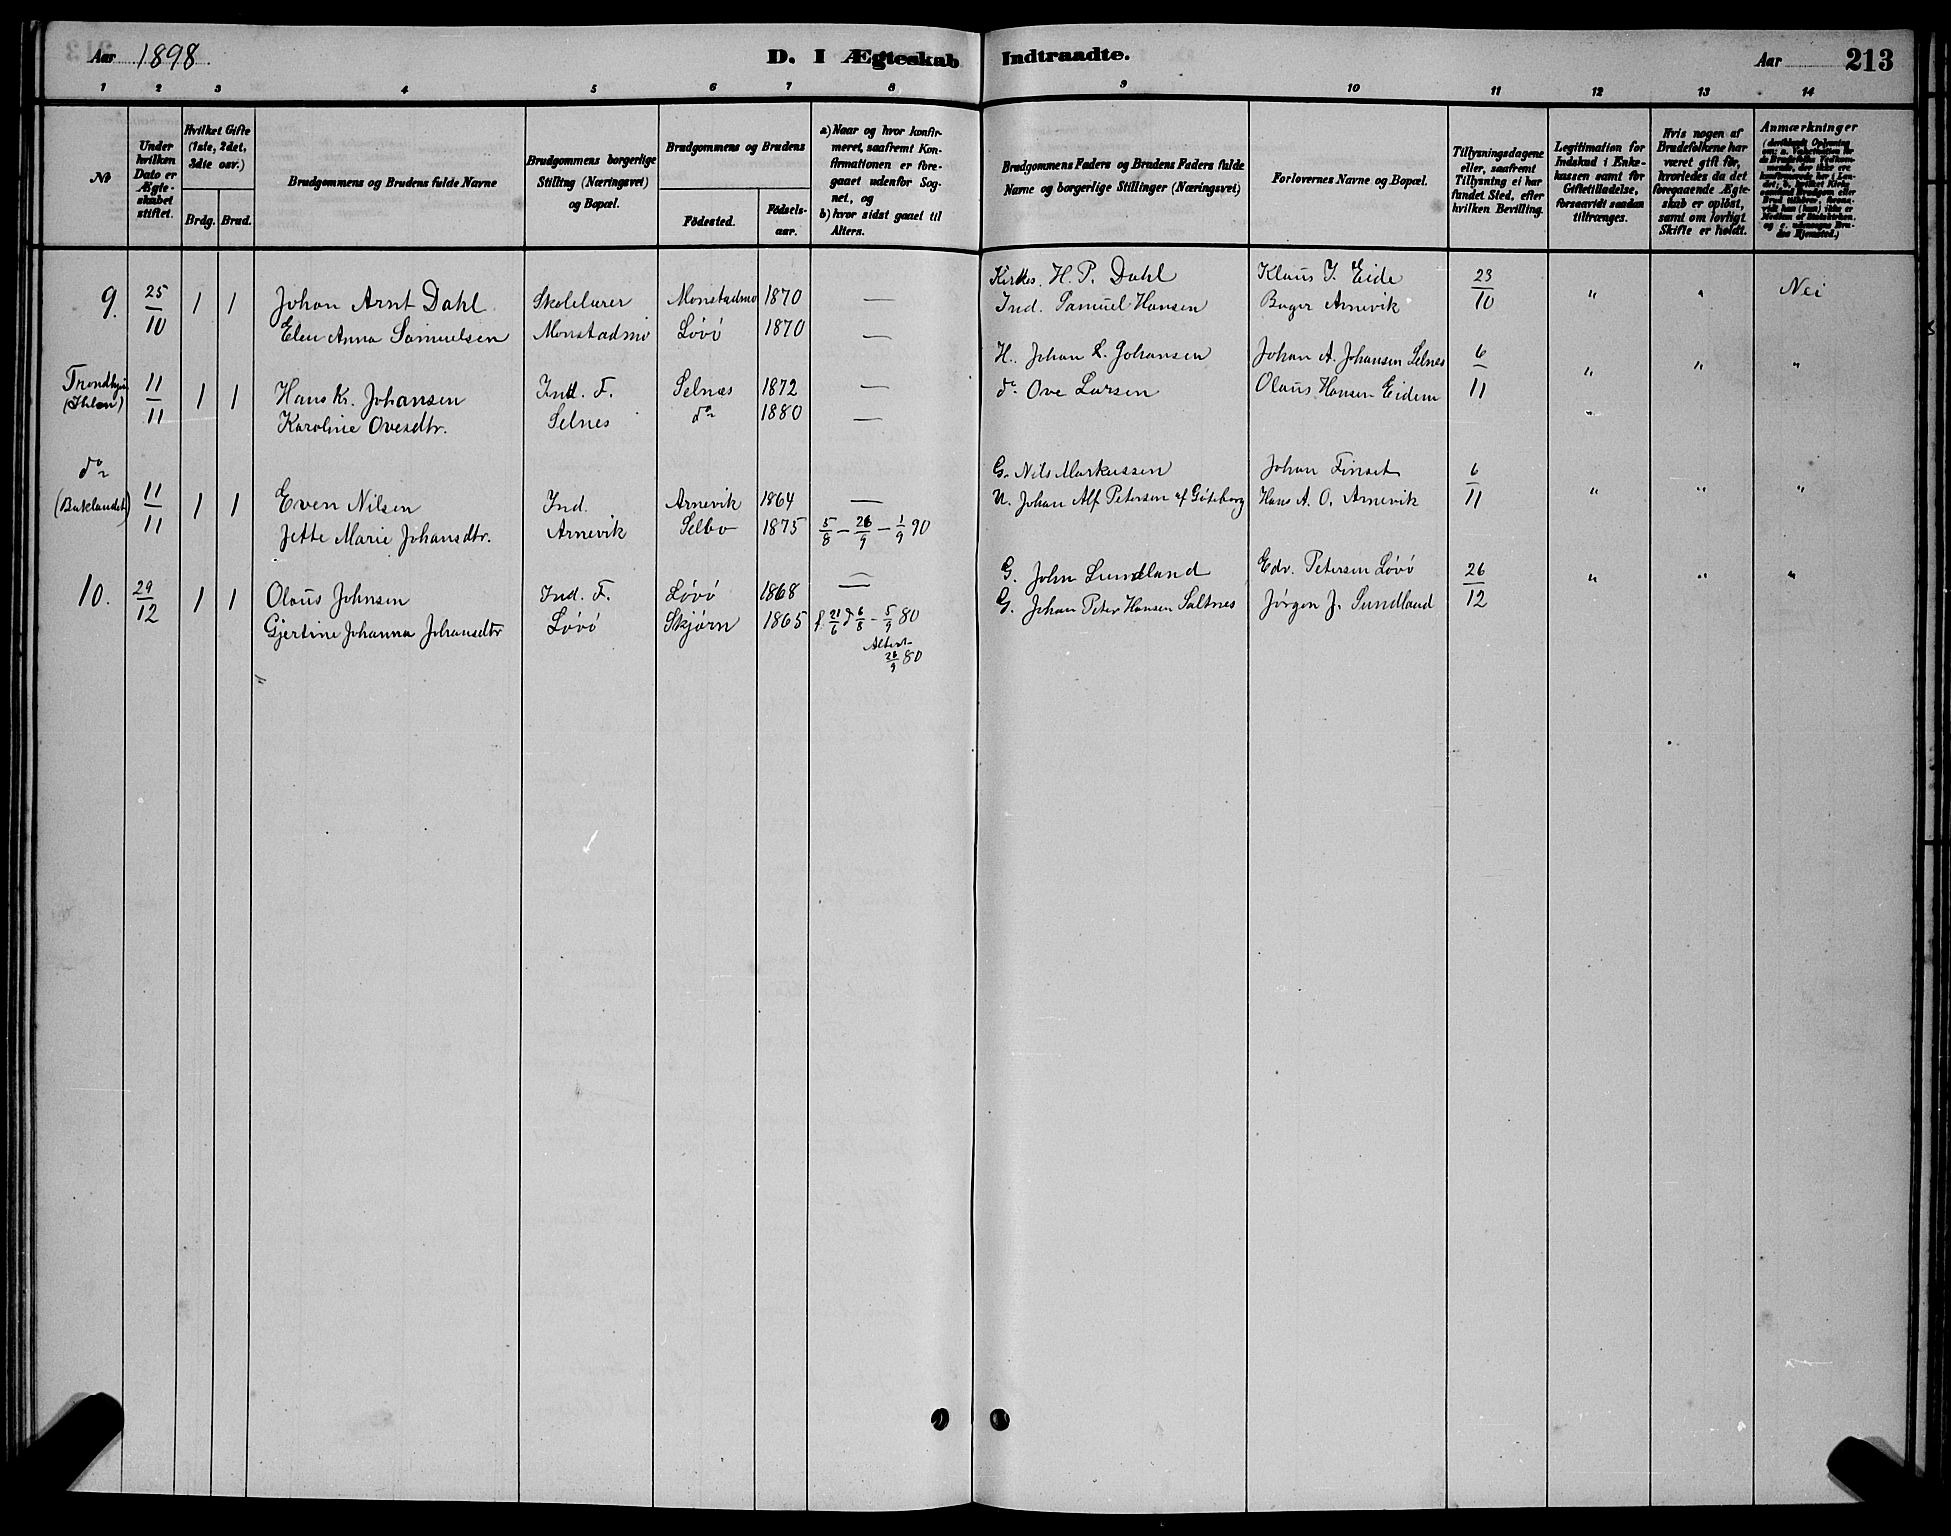 Aar 1898. D. I Ægteskab Indtraadte. Aar 213
1 2 3 4 5 6 7 8 9 10 11 12 13 14
No
Under hvilken Dato er Ægteskabet stiftet.
Hvilket Gifte (1ste, 2det, 3die osv.)
Brdg. Brud.
Brudgommens og Brudens fulde Navne
Brudgommens borgerlige Stilling (Næringsvei) og Bopæl.
Brudgommens og Brudens
Födested. Födselsaar.
a) Naar og hvor konfirmeret, saafremt Konfirmationen er foregaaet udenfor Sognet, og
b) hvor sidst gaaet til Alters.
Brudgommens Faders og Brudens Faders fulde Navne og borgerlige Stillinger (Næringsvei)
Forlovernes Navne og Bopæl.
Tillysningsdagene eller, saafremt Tillysning ei har fundet Sted, efter hvilken Bevilling.
Legitimation for Indskud i Enkekassen samt for Giftetilladelse, forsaavidt saadan tiltrænges.
Hvis nogen af Brudefolkene har været gift før, hvorledes da det foregaaende Ægteskab er oplöst, samt om lovligt Skifte er holdt.
Anmærkninger
9. 25/10 1 1 Johan Arnt Dahl Skolelærer Monstadmo 1870 — Kirkes. H. P. Dahl Klaus J. Eide 23/10 " " Nei
Elen Anna Samuelsen Monstadmo Lövö 1870 — Ind. Samuel Hansen Bager Arnevik
Trondhjem (Ihlen) 11/11 1 1 Hans Kr. Johansen Ind. F. Selnæs 1872 — H. Johan L. Johansen Johan A. Johansen Selnes 6/11 " " "
Karoline Ovesdtr. Selnes do 1880 — do Ove Larsen Olaus Hansen Eidem "
do (Baklandet) 11/11 1 1 Even Nilsen Ind. Arnevik 1864 — G. Nils Markussen Johan Finset 6/11 " " "
Jette Marie Johansdtr. Arnevik Selbo 1875 5/8 - 26/9 - 1/9 90 U. Johan Alf. Petersen af Göteborg Hans A. O. Arnevik
10. 29/12 1 1 Olaus Johnsen Ind. F. Lövö 1868 — G. John Sundland Edv. Petersen Lövö 26/12 " " "
Gjertine Johanna Johansdtr Lövö Skjørn 1865 f. 21/6 d 6/8 - 5/9 80 G. Johan Peter Hansen Saltnes Jörgen J. Sundland
Altert. 26/9 80